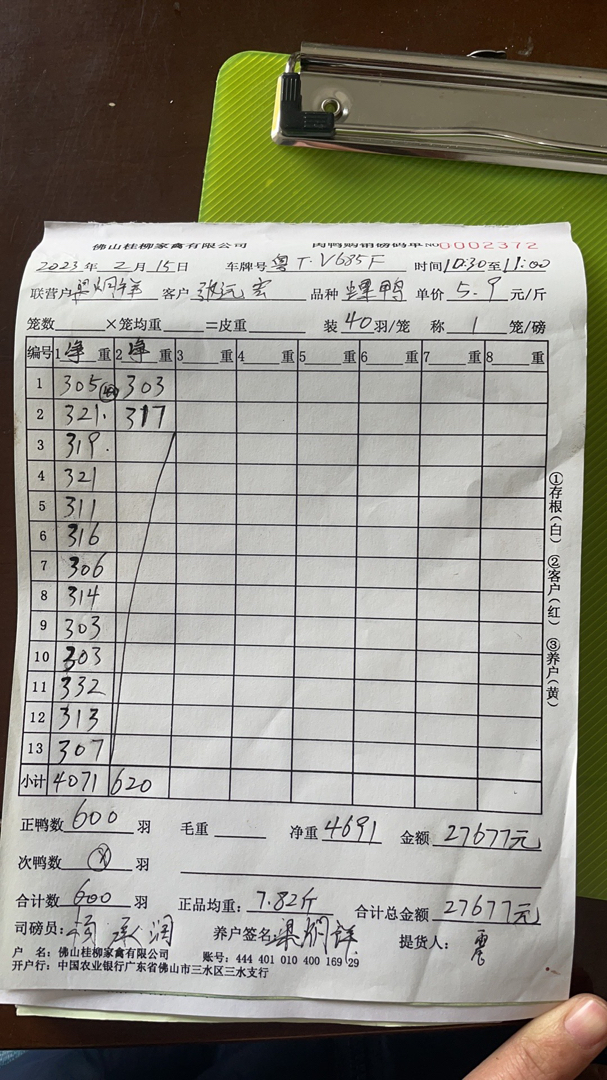 佛山桂柳家禽有限公司 肉鸭购销磅码单 No 0002372
2023年 2月 15日 车牌号 粤T·V685F 时间 10:30至11:00
联营户 梁炳祥 客户 张远宏 品种 螺鸭 单价 5.9 元/斤
笼数 ×笼均重 =皮重 装 40 羽/笼 称 1 笼/磅
编号 1 净 重 2 净 重 3 重 4 重 5 重 6 重 7 重 8 重
1 305 303
2 321. 317
3 319.
4 321
5 311
6 316
7 306
8 314
9 303
10 303
11 332
12 313
13 307
小计 4071 620
①存根(白) ②客户(红) ③养户(黄)
正鸭数 600 羽 毛重 净重 4691 金额 27677元
次鸭数 羽
合计数 600 羽 正品均重: 7.82斤 合计总金额 27677元
司磅员: 养户签名: 梁炳祥 提货人:
户 名: 佛山桂柳家禽有限公司 账号: 444 401 010 400 169 29
开户行: 中国农业银行广东省佛山市三水区三水支行